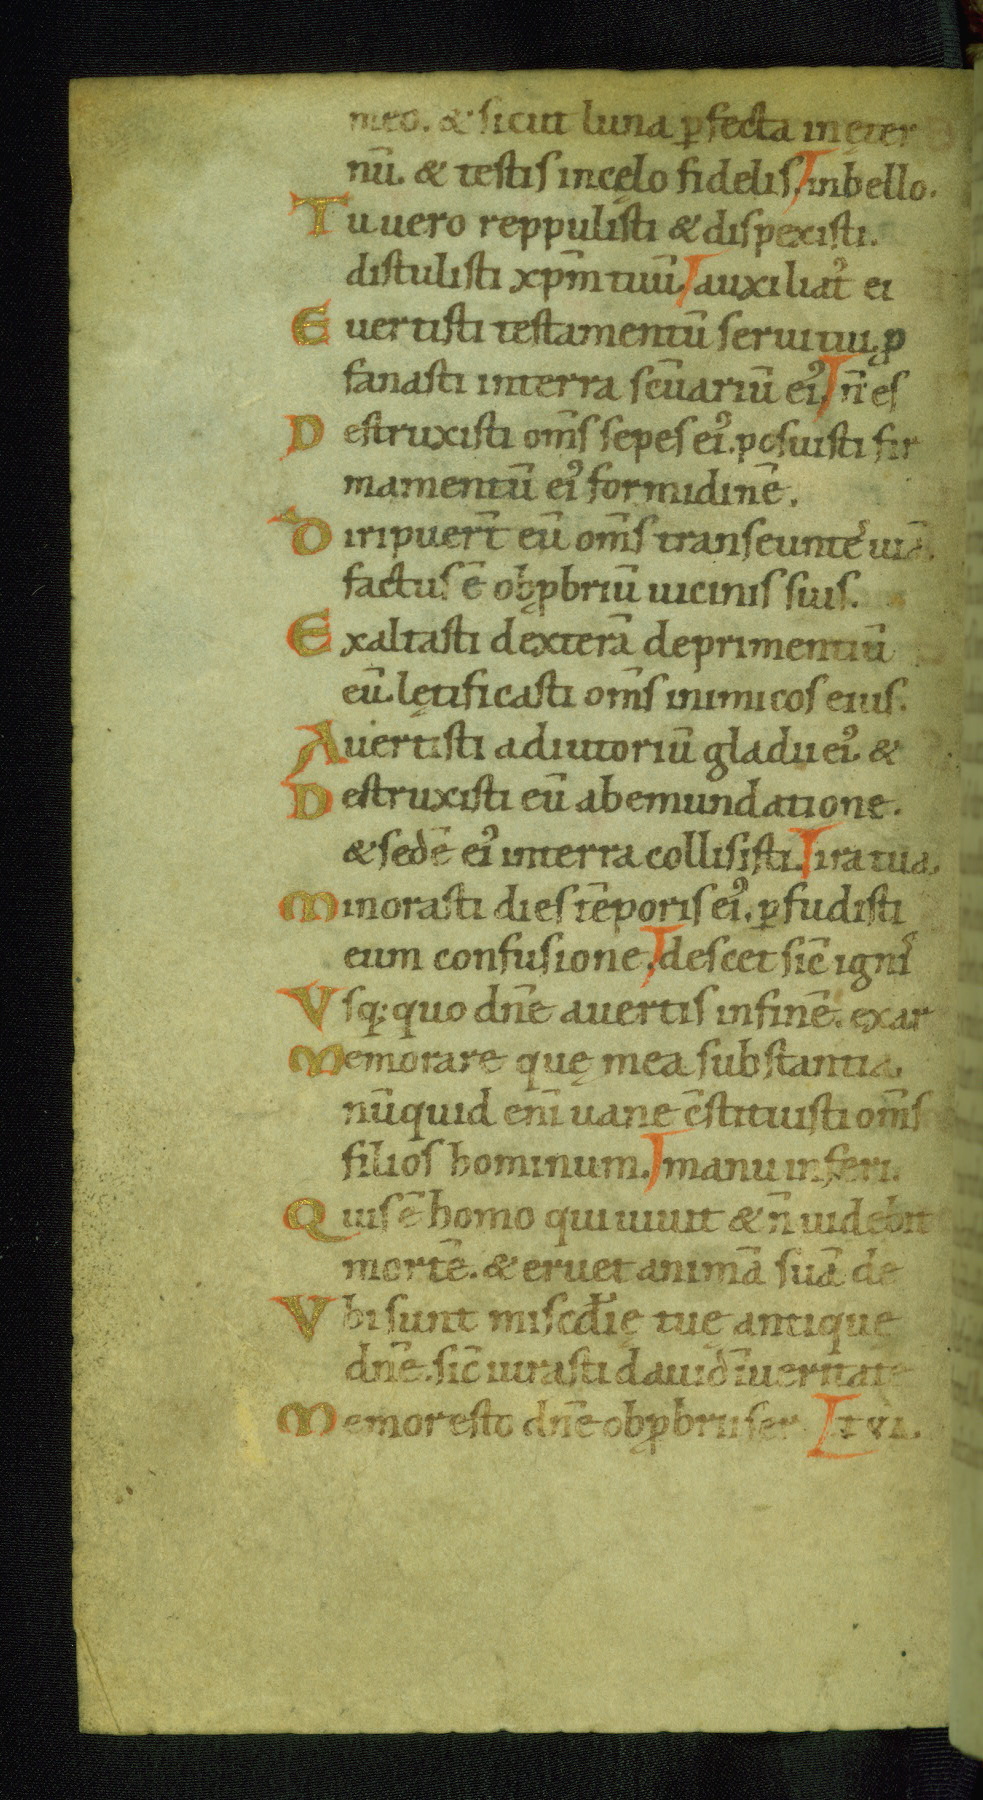 meo. & sicut luna ꝑfecta in ęter
nū. & testis in cęlo fidelis. in bello.
Tu uero reppulisti & dispexisti.
distulisti xp̄m tuū. auxiliat᷒ ei
Euertisti testamentū serui tui. ꝓ
fanasti in terra sc̄uariū ei᷒. n̄ es
Destruxisti om̄s sepes ei᷒. posuisti fir
mamentū ei᷒ formidinē.
Diripuer̄t eū om̄s transeunte᷒ uiā.
factus ē obꝓbriū uicinis suis.
Exaltasti dexterā deprimentiū
eū. lętificasti om̄s inimicos eius.
Auertisti adiutoriū gladii ei᷒ &
Destruxisti eū ab emundatione.
& sedē ei᷒ in terra collisisti. ira tua.
Minorasti dies tēporis ei᷒. ꝑfudisti
eum confusione. descet sic̄ igni᷒
Vsq; quo dn̄e auertis in finē. exar
Memorare quę mea substantia.
nūquid eni̅ uane c̄stituisti om̄s
filios hominum. manu inferi.
Quis ē homo qui uiuit & n̄ uidebit
mortē. & eruet animā suā de
Vbi sunt misc̄dię tuę antiquę
dn̄e. sic̄ iurasti dauid ī ueritate
Memor esto dn̄e obꝓbrii ser